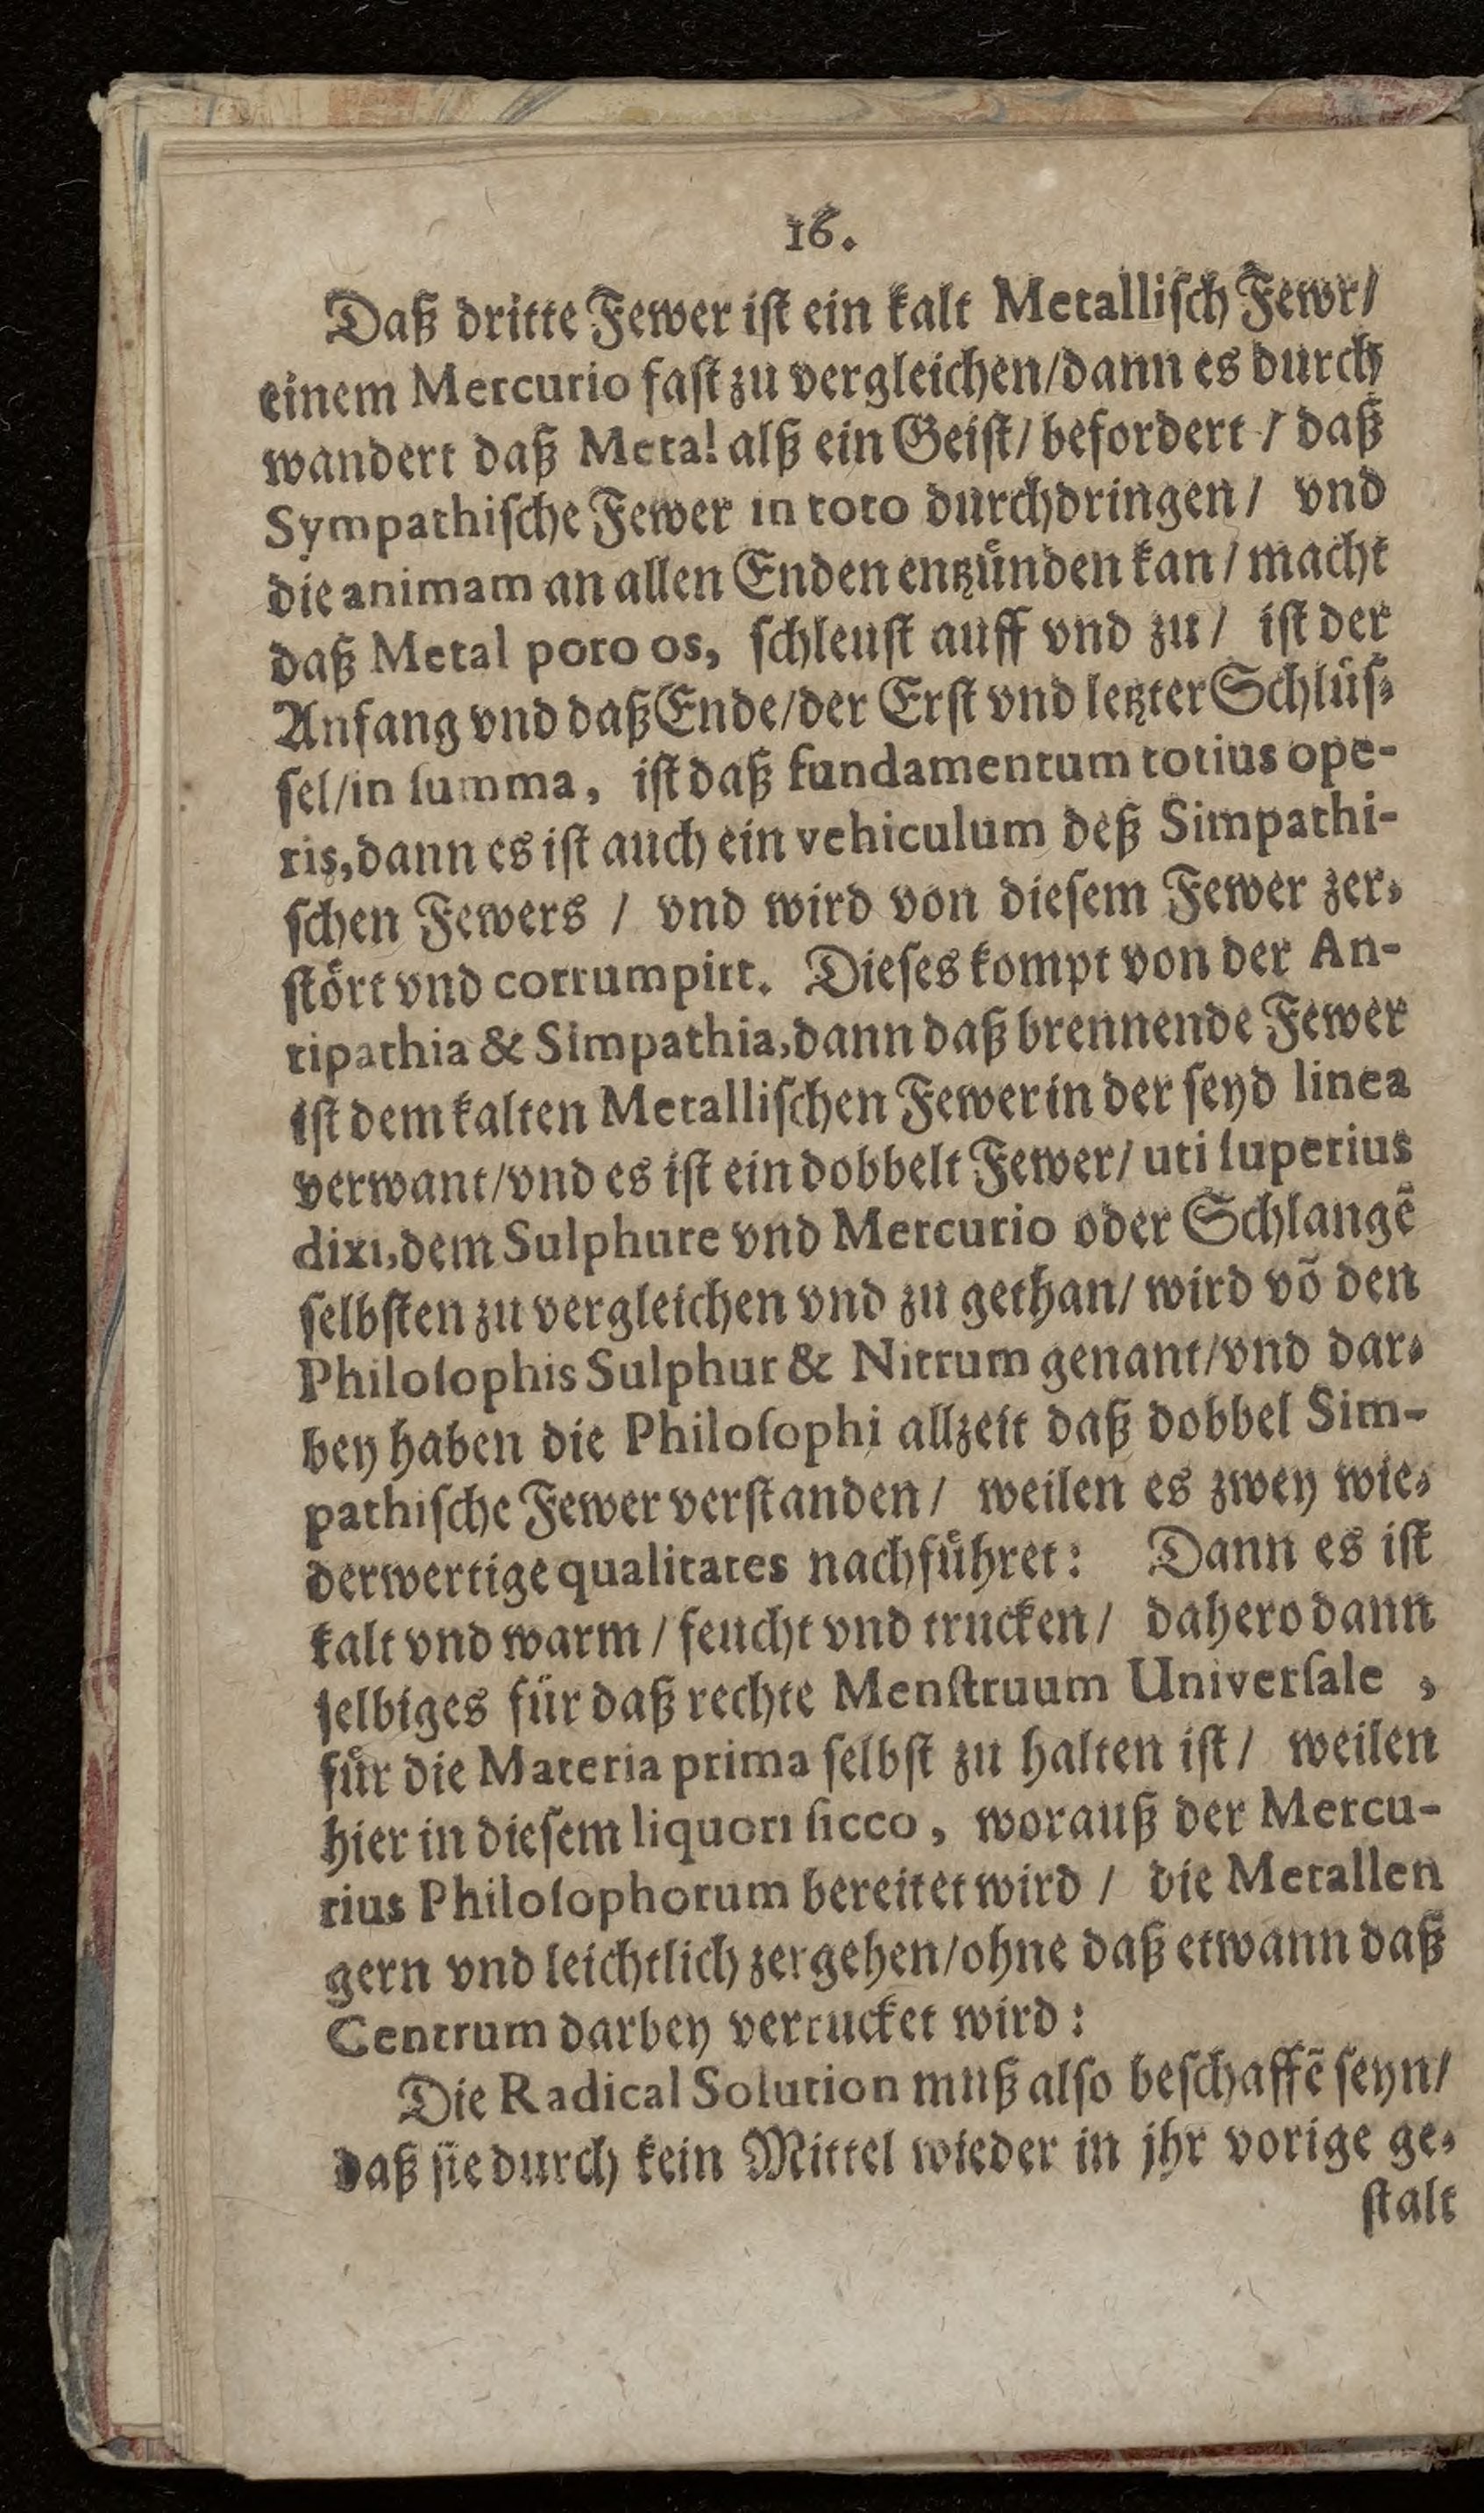 16.
Daß dritte Fewer iſt ein kalt Metalliſch Fewr/
einem Mercurio faſt zu vergleichen/dann es durch
wandert daß Metal alß ein Geiſt/ befordert / daß
Sympathiſche Fewer in toto durchdringen / vnd
die animam an allen Enden entzuͤnden kan / macht
daß Metal poro os, ſchleuſt auff vnd zu / iſt der
Anfang vnd daß Ende/der Erſt vnd letzter Schluͤſ-
ſel/in ſumma, iſt daß fundamentum totius ope-
ris,dann es iſt auch ein vehiculum deß Simpathi-
ſchen Fewers / vnd wird von dieſem Fewer zer-
ſtoͤrt vnd corrumpirt. Dieſes kompt von der An-
tipathia & Simpathia,dann daß brennende Fewer
iſt dem kalten Metalliſchen Fewer in der ſeyd linea
verwant/vnd es iſt ein dobbelt Fewer/ uti ſuperius
dixi,dem Sulphure vnd Mercurio oder Schlangẽ
ſelbſten zu vergleichen vnd zu gethan/ wird võ den
Philoſophis Sulphur & Nitrum genant/vnd dar-
bey haben die Philoſophi allzeit daß dobbel Sim-
pathiſche Fewer verſtanden / weilen es zwey wie-
derwertige qualitates nachfuͤhret: Dann es iſt
kalt vnd warm / feucht vnd trucken / dahero dann
ſelbiges fuͤr daß rechte Menſtruum Univerſale ,
fuͤr die Materia prima ſelbſt zu halten iſt / weilen
hier in dieſem liquori ſicco, worauß der Mercu-
rius Philoſophorum bereitet wird / die Metallen
gern vnd leichtlich zergehen/ohne daß etwann daß
Centrum darbey verrucket wird:
Die Radical Solution muß alſo beſchaffẽ ſeyn/
daß ſie durch kein Mittel wieder in jhr vorige ge-
ſtalt